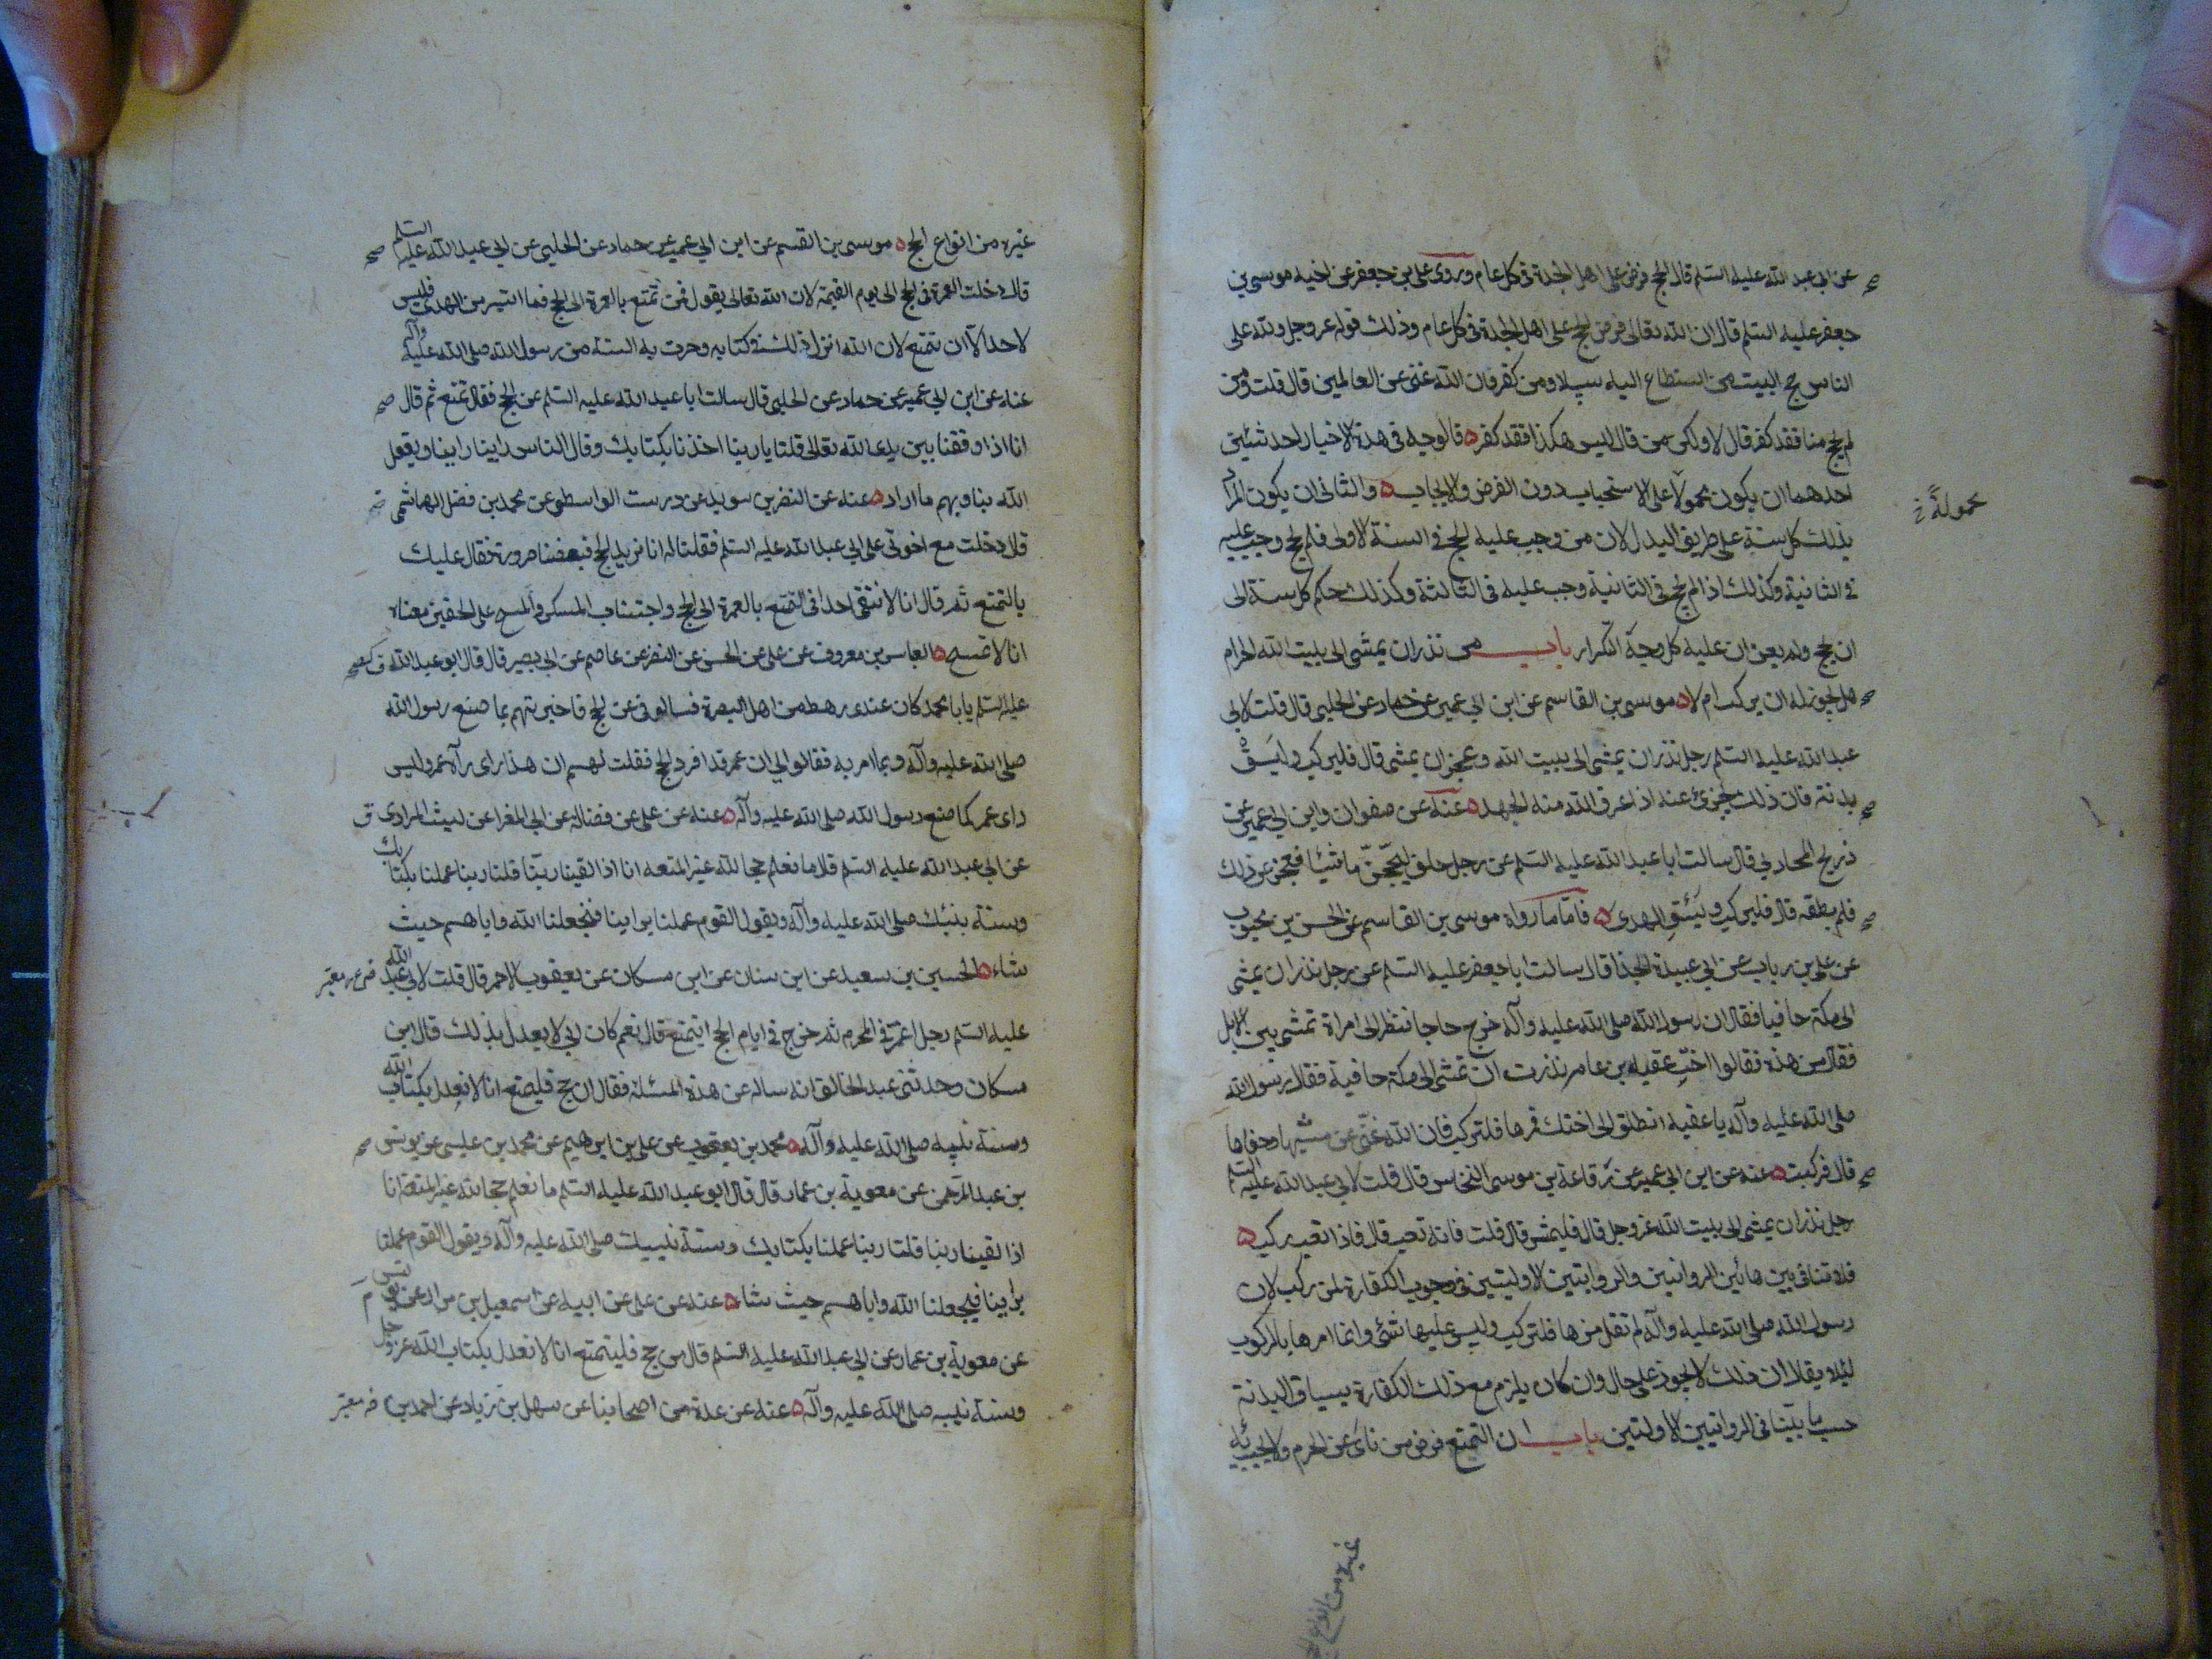 عن ابى عبد الله عليه السلم قال الحج فرض على اهل الجدة فى كل عام وروى على بن جعفر عن اخيه موسى بن
جعفر عليه السلم قال ان الله تعالى فرض الحج على اهل الجدة فى كل عام وذلك قوله عز وجل ولله على
الناس حج البيت من استطاع اليه سبيلا ومن كفر فان الله غنى عن العالمين قال قلت ومن
لم يحج منا فقد كفر قال لا ولكن من قال ليس هكذا فقد كفر فالوجه فى هذه الاخبار احد شيئين
احدهما ان يكون محمولا على الاستحباب دون الفرض والايجاب والثانى ان يكون المراد
محمولة خ
بذلك كل سنة على طريق البدل لان من وجب عليه الحج فى السنة الاولى فلم يحج وجب عليه
فى الثانية وكذلك اذا لم يحج فى الثانية وجب عليه فى الثالثة وكذلك حكم كل سنة الى
ان يحج ولم يعن ان عليه كل وجه التكرار باب من نذر ان يمشى الى بيت الله الحرام
صح هل يجوز له ان يركب ام لا موسى بن القاسم عن ابن ابي عمير عن حماد عن الحلبى قال قلت لابي
عبد الله عليه السلم رجل نذر ان يمشى الى بيت الله وعجز ان يمشى قال فليركب وليسق
صح بدنة فان ذلك يجزئ عنه اذا عرف الله منه الجهد عنه عن صفوان وابن ابي عمير عن
ذريح المحاربي قال سالت ابا عبد الله عليه السلم عن رجل حلف ليحجن ماشيا فعجز عن ذلك
صح فلم يطقه قال فليركب وليسق الهدى فاما ما رواه موسى بن القاسم عن الحسن بن محبوب
عن على بن رياب عن ابي عبيدة الحذا قال سالت ابا جعفر عليه السلم عن رجل نذر ان يمشى
الى مكة حافيا فقال ان رسول الله صلى الله عليه وآله خرج حاجا فنظر الى امراة تمشى بين الابل
فقال من هذه فقالوا اخت عقبه بن عامر نذرت ان تمشى الى مكة حافية فقال رسول الله
صلى الله عليه وآله يا عقبه انطلق الى اختك فمرها فلتركب فان الله غنى عن مشيها وحفاها
صح قال فركبت عنه عن ابن ابي عمير عن رفاعة بن موسى النخاس قال قلت لابي عبد الله عليه السلم
رجل نذر ان يمشى الى بيت الله عز وجل قال فليمش قال قلت فانه تعب قال فاذا تعب ركب
فلا تنافى بين هاتين الروايتين والروايتين الاوليتين فى وجوب الكفارة لمن ركب لان
رسول الله صلى الله عليه وآله لم تقل مرها فلتركب وليس عليها شئ وانما امرها بالركوب
لئلا يقال ان ذلك لا يجوز على حال وان كان يلزم مع ذلك الكفارة بسياق البدنة
حسب ما بينا فى الروايتين الاولتين باب ان التمتع فرض من ناى عن الحرم ولا يجزيه
غيره من انواع الحج
غيره من انواع الحج موسى بن القسم عن ابن ابي عمير عن حماد عن الحلبى عن ابي عبد الله عليه السلم صح
قال دخلت العمرة فى الحج الى يوم القيمة لان الله تعالى يقول فمن تمتع بالعمرة الى الحج فما استيسر من الهدى فليس
لاحد الا ان تمتع لان الله انزل ذلك فى كتابه وجرت به السنة من رسول الله صلى الله عليه وآله
عنه عن ابن ابي عمير عن حماد عن الحلبى قال سالت ابا عبد الله عليه السلم عن الحج فقال تمتع ثم قال صح
انا اذا وقفنا بين يدى الله تعالى قلنا يا ربنا اخذنا بكتابك وقال الناس راينا راينا ويفعل
الله بنا وبهم ما اراد عنه عن النضر بن سويد عن درست الواسطى عن محمد بن فضل الهاشمى
قال دخلت مع اخوتى على ابي عبد الله عليه السلم فقلنا له انا نريد الحج فبعضنا صرورة فقال عليك
بالتمتع ثم قال انا لا نتقى احدا فى التمتع بالعمرة الى الحج واجتناب المسكر والمسح على الخفين معناه
انا لا نمسح العباس بن معروف عن على عن الحسن عن النضر عن عاصم عن ابى بصير قال قال ابو عبد الله ق كصح
عليه السلم يا با محمد كان عندى رهط من اهل البصرة فسالونى عن الحج فاخبرتهم بما صنع رسول الله
صلى الله عليه وآله وبما امر به فقالوا لى ان عمر قد افرد الحج فقلت لهم ان هذا راى رآه عمر وليس
راى عمر كما صنع رسول الله صلى الله عليه وآله عنه عن على عن فضاله عن ابى المغرا عن ليث المرادى ق
عن ابي عبد الله عليه السلم قال ما نعلم حجا لله غير المتعه انا اذا لقينا ربنا قلنا ربنا عملنا بكتابك
وسنة بنيك صلى الله عليه وآله ويقول القوم عملنا براينا فيجعلنا الله واياهم حيث
شاء الحسين بن سعيد عن ابن سنان عن ابن مسكان عن يعقوب الاحمر قال قلت لابى عبد الله
عليه السلم رجل اعتمر فى المحرم ثم خرج فى ايام الحج ايتمتع قال نعم كان ابي لا يعدل بذلك قال ابن
مسكان وحدثنى عبد الخالق انه ساله عن هذه المسئلة فقال ان حج فليتمتع انا لا نعدل بكتاب الله
وسنة نبيه صلى الله عليه وآله محمد بن يعقوب عن على بن ابرهيم عن محمد بن عيسى عن يونس صح
بن عبد الرحمن عن معوية بن عمار قال قال ابو عبد الله عليه السلم ما نعلم حجا لله غير المتعة انا
اذا لقينا ربنا قلنا ربنا عملنا بكتابك وسنة نبيك صلى الله عليه وآله ويقول القوم عملنا
براينا فيجعلنا الله واياهم حيث شاء عنه عن على عن ابيه عن اسمعيل بن مرار عن يونس م
عن معوية بن عمار عن ابي عبد الله عليه السلم قال من حج فليتمتع انا لا نعدل بكتاب الله عز وجل
وسنة نبيه صلى الله عليه وآله عنه عن عدة من اصحابنا عن سهل بن زياد عن احمد بن